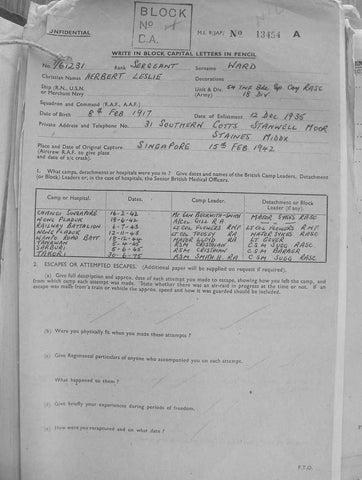 BLOCK
No
C.A.
CONFIDENTIAL
M.I. 9/JAP/ No 13454 A
WRITE IN BLOCK CAPITAL LETTERS IN PENCIL
No. 761231 Rank SERGEANT Surname WARD
Christian Names HERBERT LESLIE Decorations
Ship (R.N., U.S.N. or Merchant Navy) Unit & Div. (Army) 54 INF BDE Gp Coy RASC 18 DIV
Squadron and Command (R.A.F., A.A.F.)
Date of Birth 8th FEB 1917 Date of Enlistment 12 DEC 1935
Private Address and Telephone No. 31 SOUTHERN COTTS STANWELL MOOR
STAINES MIDDX
Place and Date of Original Capture SINGAPORE 15th FEB 1942
(Aircrew R.A.F. to give place
and date of a/c crash).
1. What camps, detachments or hospitals were you in? Give dates and names of the British Camp Leaders, Detachment
(or Block) Leaders or, in the case of hospitals, the Senior British Medical Officers.
Camp or Hospital. Dates. Camp Leader. Detachment or Block Leader (if any).
CHANGI SINGAPORE 16-2-42 MAJOR SYKES RASC
NONG PLADUK GILL RA
RAILWAY BATTALION 6-7-43 LT COL FLOWERS RNF LT COL FLOWERS RNF
NONG PLADUK 12-11-43 LT COL TOOSEY RA MAJOR SYKES RASC
19-12-44 MAJOR LLOYD RA
RSM CRISDIAN CSM SUGG RASC
RSM CRISDIAN
TAKORI RSM SMITH H. RA CSM SUGG RASC
2. ESCAPES OR ATTEMPTED ESCAPES. (Additional paper will be supplied on request if required).
(a) Give full description and approx. date of each attempt you made to escape, showing how you left the camp, and
from which camp each attempt was made. State whether there was an air-raid in progress at the time or not. If an
escape was made from a train or vehicle its approx. speed and how it was guarded should be included.
(b) Were you physically fit when you made these attempts?
(c) Give Regimental particulars of anyone who accompanied you on each attempt.
What happened to them?
(d) Give briefly your experiences during periods of freedom.
(e) How were you recaptured and on what date?
P.T.O.